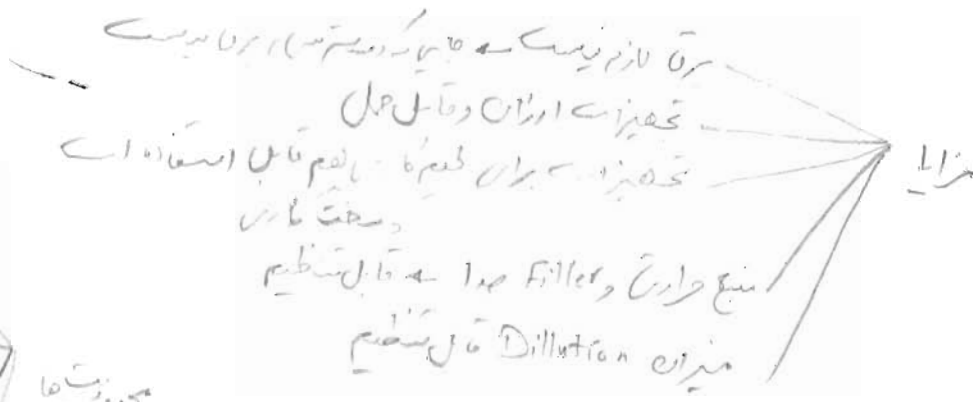 مزایا
برق لازم نیست ← جایی که دسترسی به برق نیست
تجهیزات ارزان و قابل حمل
تجهیزات برای لحیم کاری هم قابل استفاده است
و سخت کاری
منبع حرارتی و Filler جدا ← قابل تنظیم
میزان Dillution قابل تنظیم
محدودیت‌ها